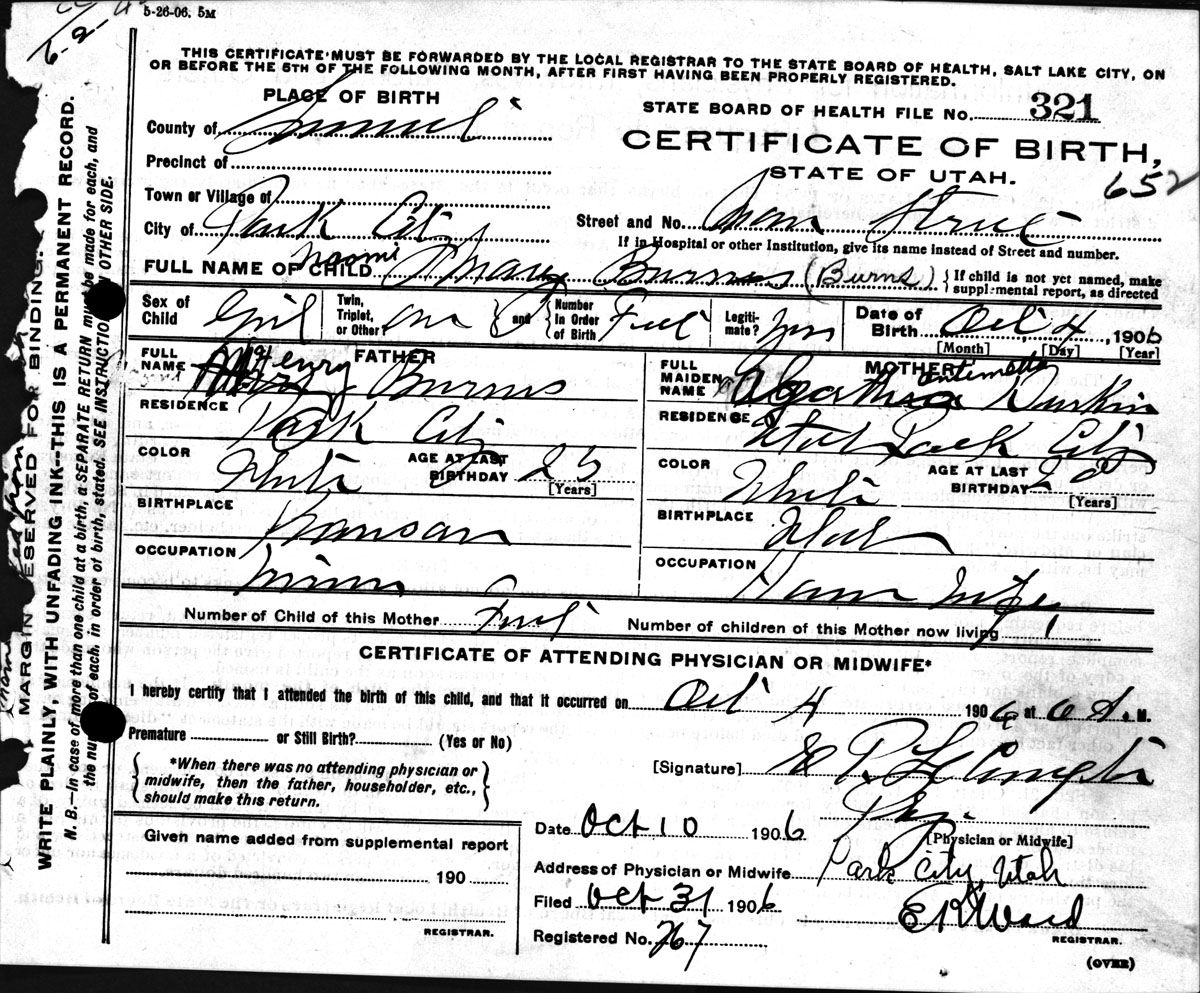 5-26-06. 5M
THIS CERTIFICATE MUST BE FORWARDED BY THE LOCAL REGISTRAR TO THE STATE BOARD OF HEALTH, SALT LAKE CITY, ON
OR BEFORE THE 5TH OF THE FOLLOWING MONTH, AFTER FIRST HAVING BEEN PROPERLY REGISTERED.
PLACE OF BIRTH
STATE BOARD OF HEALTH FILE No. 321
County of Summit
CERTIFICATE OF BIRTH,
STATE OF UTAH.
652
Precinct of
Town or Village of
City of Park City
Street and No.
If in Hospital or other Institution, give its name instead of Street and number.
FULL NAME OF CHILD Naomi Mary Burns (Burns) { If child is not yet named, make supplemental report, as directed
Sex of Child Girl
Twin, Triplet, or Other? one and { Number In Order of Birth } First
Legitimate? Yes
Date of Birth Oct 4, 1906
[Month] [Day] [Year]
FATHER
FULL NAME Henry Burns
RESIDENCE Park City
COLOR White AGE AT LAST BIRTHDAY 23
[Years]
BIRTHPLACE Kansas
OCCUPATION Miner
MOTHER
FULL MAIDEN NAME Durkin
RESIDENCE Park City
COLOR White AGE AT LAST BIRTHDAY 20
[Years]
BIRTHPLACE Utah
OCCUPATION House Wife
Number of Child of this Mother First Number of children of this Mother now living 1
CERTIFICATE OF ATTENDING PHYSICIAN OR MIDWIFE*
I hereby certify that I attended the birth of this child, and that it occurred on Oct 4 1906 at 6 A. M.
Premature or Still Birth? (Yes or No)
{ *When there was no attending physician or midwife, then the father, householder, etc., should make this return. }
[Signature]
Phy.
[Physician or Midwife]
Date Oct 10 1906
Address of Physician or Midwife Park City, Utah
Filed Oct 31 1906
E R Ward
REGISTRAR.
Registered No. 267
(OVER)
Given name added from supplemental report
190
REGISTRAR.
MARGIN RESERVED FOR BINDING.
WRITE PLAINLY, WITH UNFADING INK—THIS IS A PERMANENT RECORD.
N. B.—In case of more than one child at a birth, a SEPARATE RETURN must be made for each, and
the number of each, in order of birth, stated. SEE INSTRUCTIONS ON OTHER SIDE.